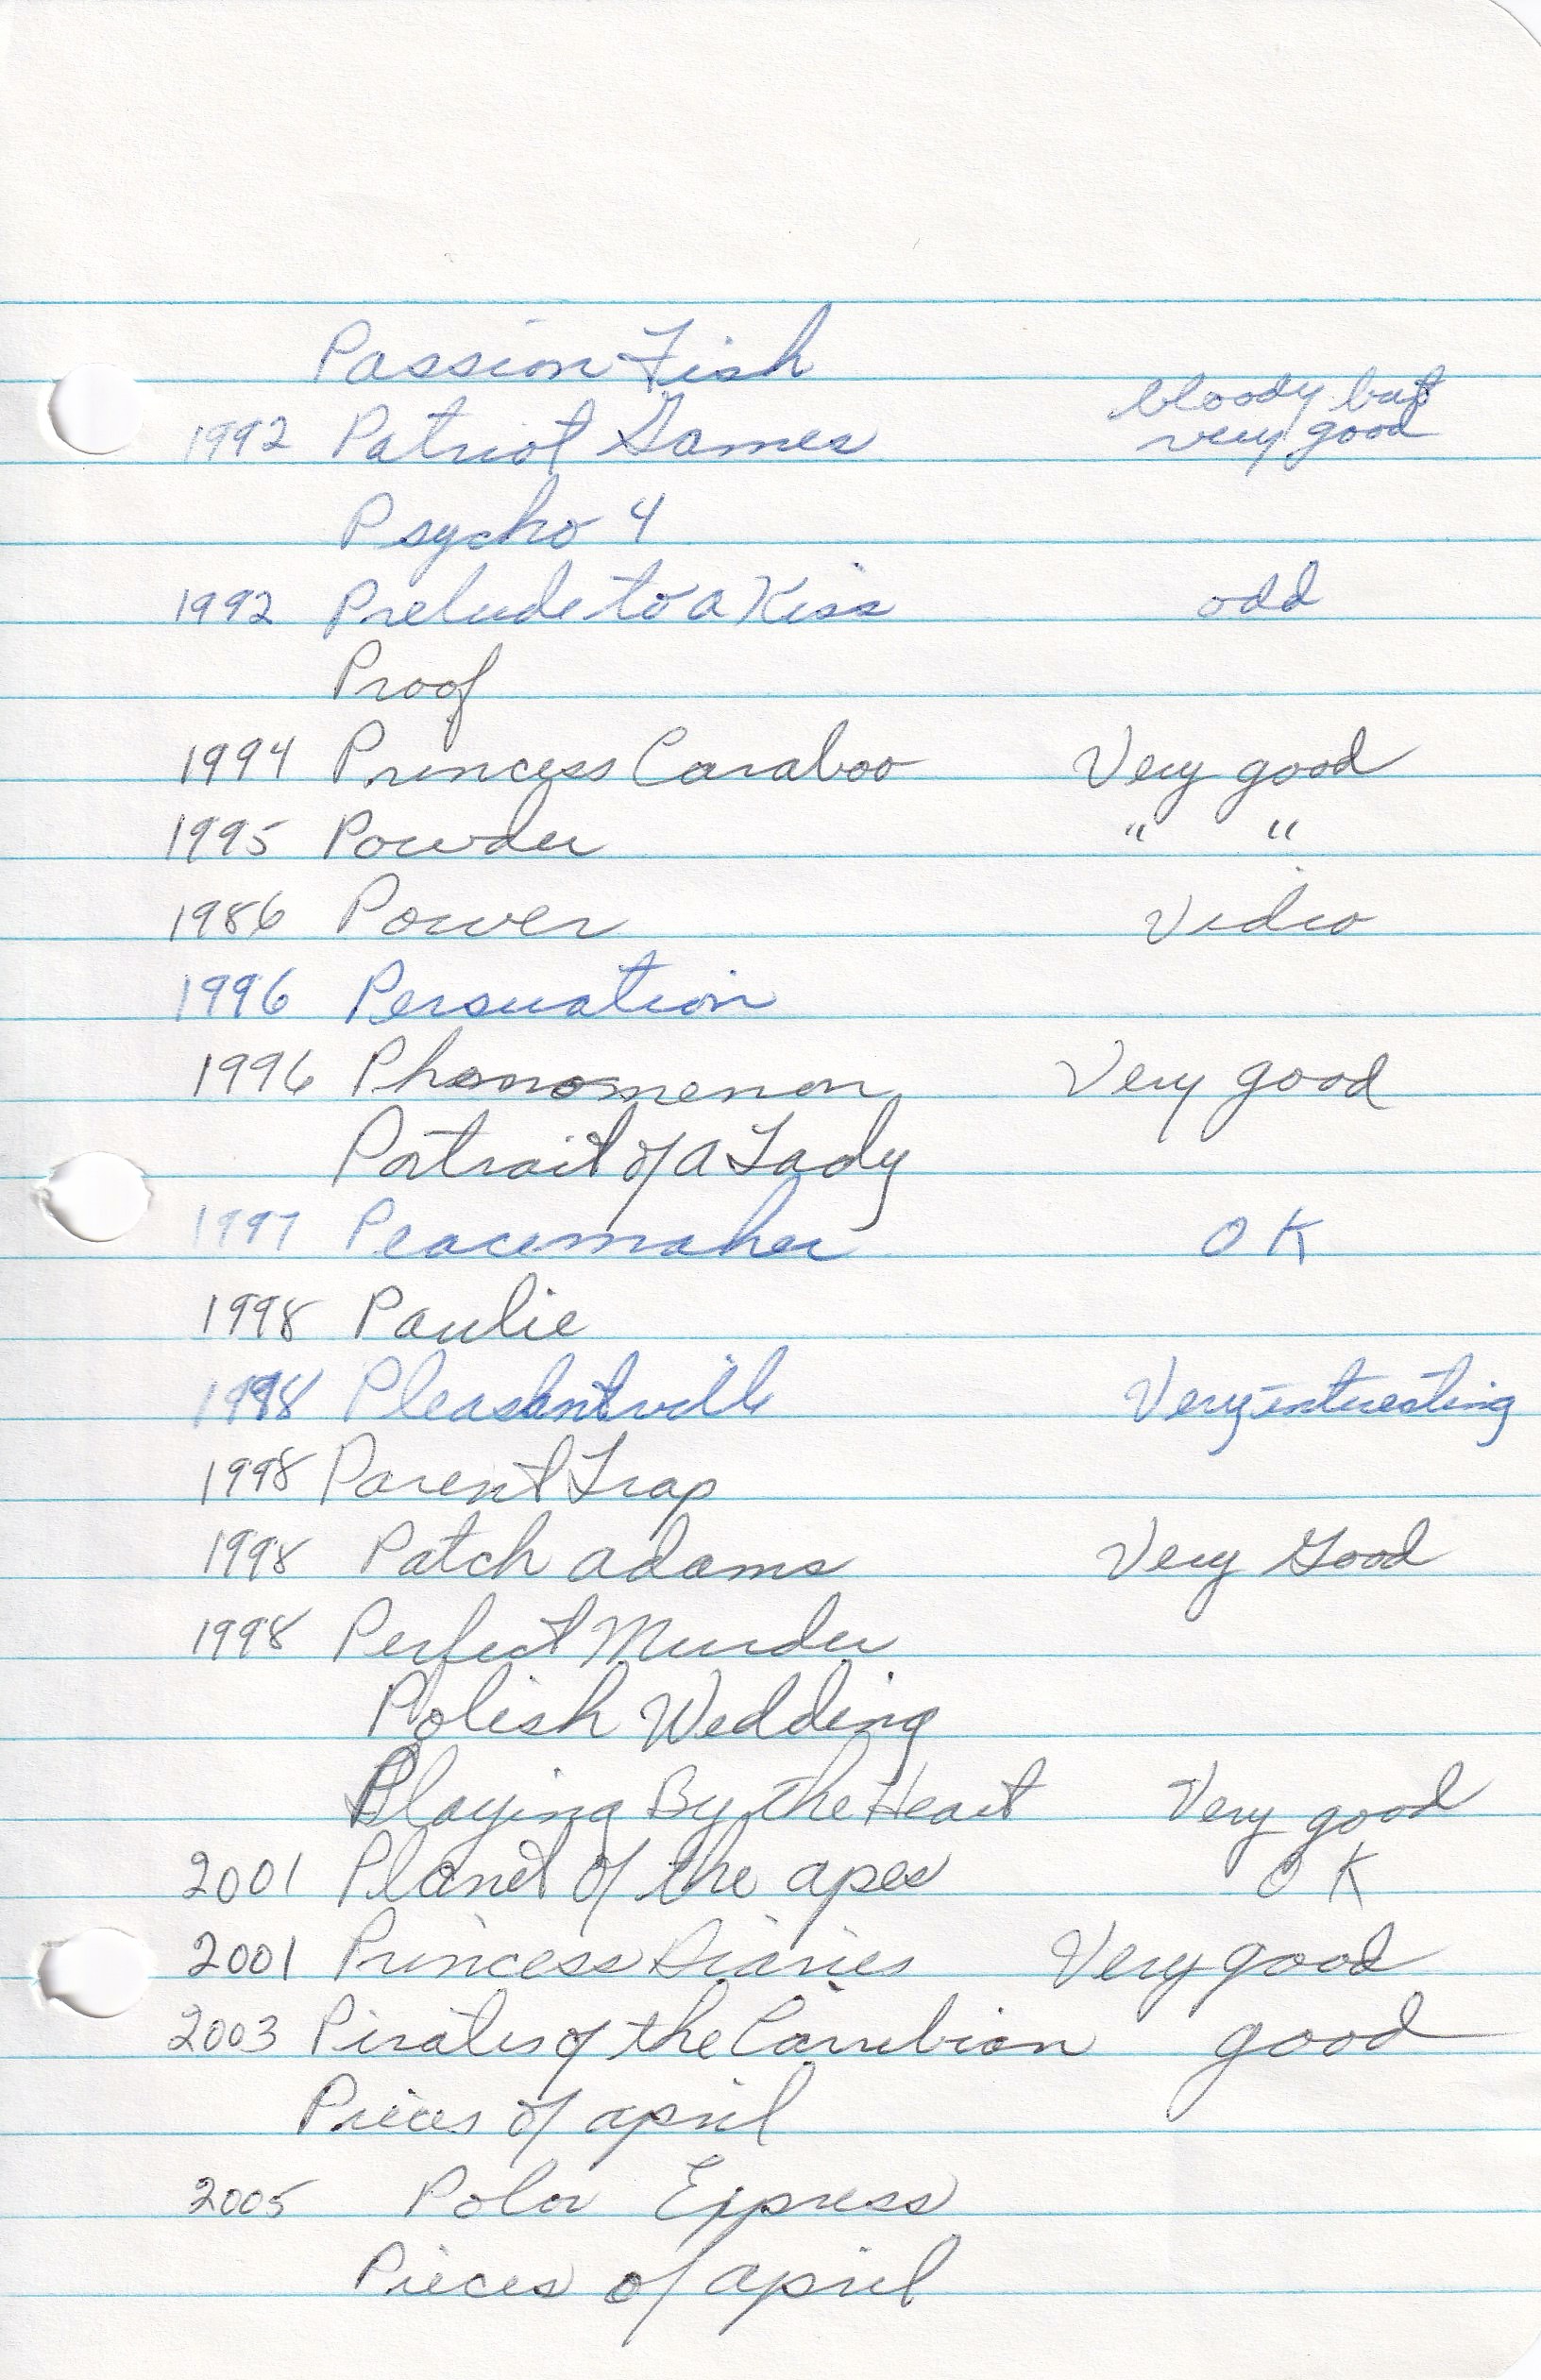 Passion Fish
bloody but
1992 Patriot Games very good
Psycho 4
1992 Prelude to a Kiss odd
Proof
1994 Princess Caraboo Very good
1995 Powder " "
1986 Power Video
1996 Persuation
1996 Phonomenon Very good
Portrait of a Lady
1997 Peacemaker OK
1998 Paulie
1998 Pleasantville Very interesting
1998 Parent Trap
1998 Patch adams Very Good
1998 Perfect Murder
Polish Wedding
Playing By the Heart Very good
2001 Planet of the apes OK
2001 Princess Diaries Very good
2003 Pirates of the Carribian good
Pieces of april
2005 Polar Express
Pieces of april